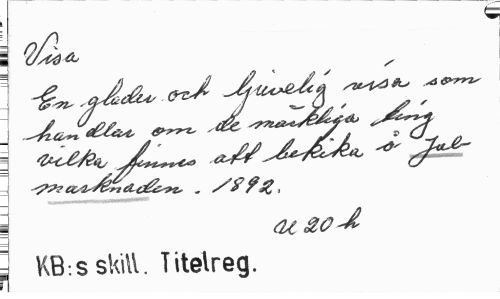 Visa
En glader och ljuvelig visa som
handlar om de märkliga ting
vilka finnes att bekika å Jul-
marknaden. 1892.
U 20 h
KB:s skill. Titelreg.